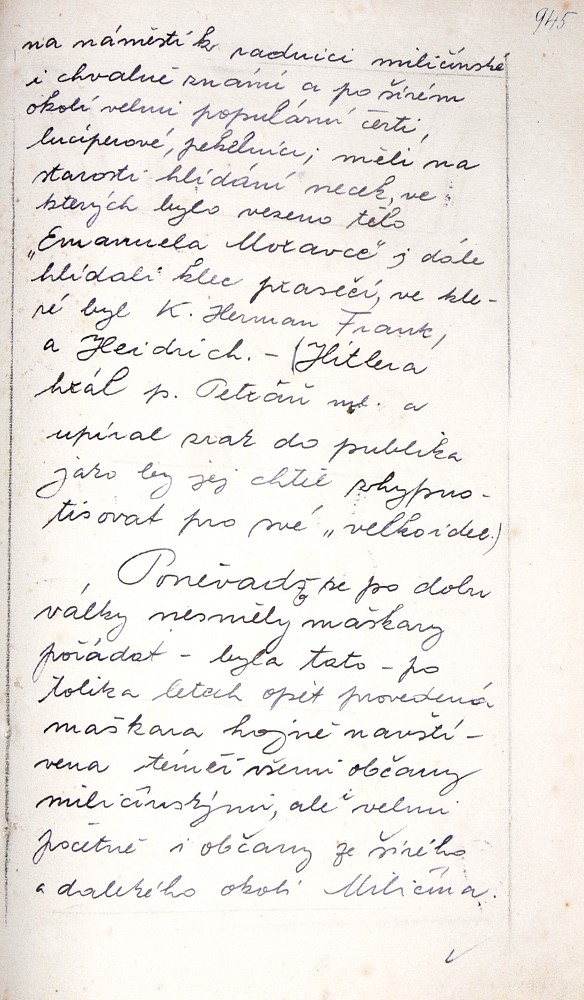 945
na náměstí k radnici miličínské
i chvalně známí a po šírém
okolí velmi populární čerti,
luciperové, pekelníci; měli na
starosti hlídání necek, ve
kterých bylo vezeno tělo
„Emanuela Moravce“; dále
hlídali klec prasečí, ve kte-
ré byl K. Herman Frank,
a Heidrich. – (Hitlera
hrál p. Petráň ml. a
upíral zrak do publika
jako by jej chtěl zhypno-
tisovat pro své „velkoidee.)
Poněvadž se po dobu
války nesměly maškary
pořádat – byla tato – po
tolika letech opět provedená
maškara hojně navští-
vena téměř všemi občany
miličínskými, ale velmi
početně i občany ze šírého
a dalekého okolí Miličína.